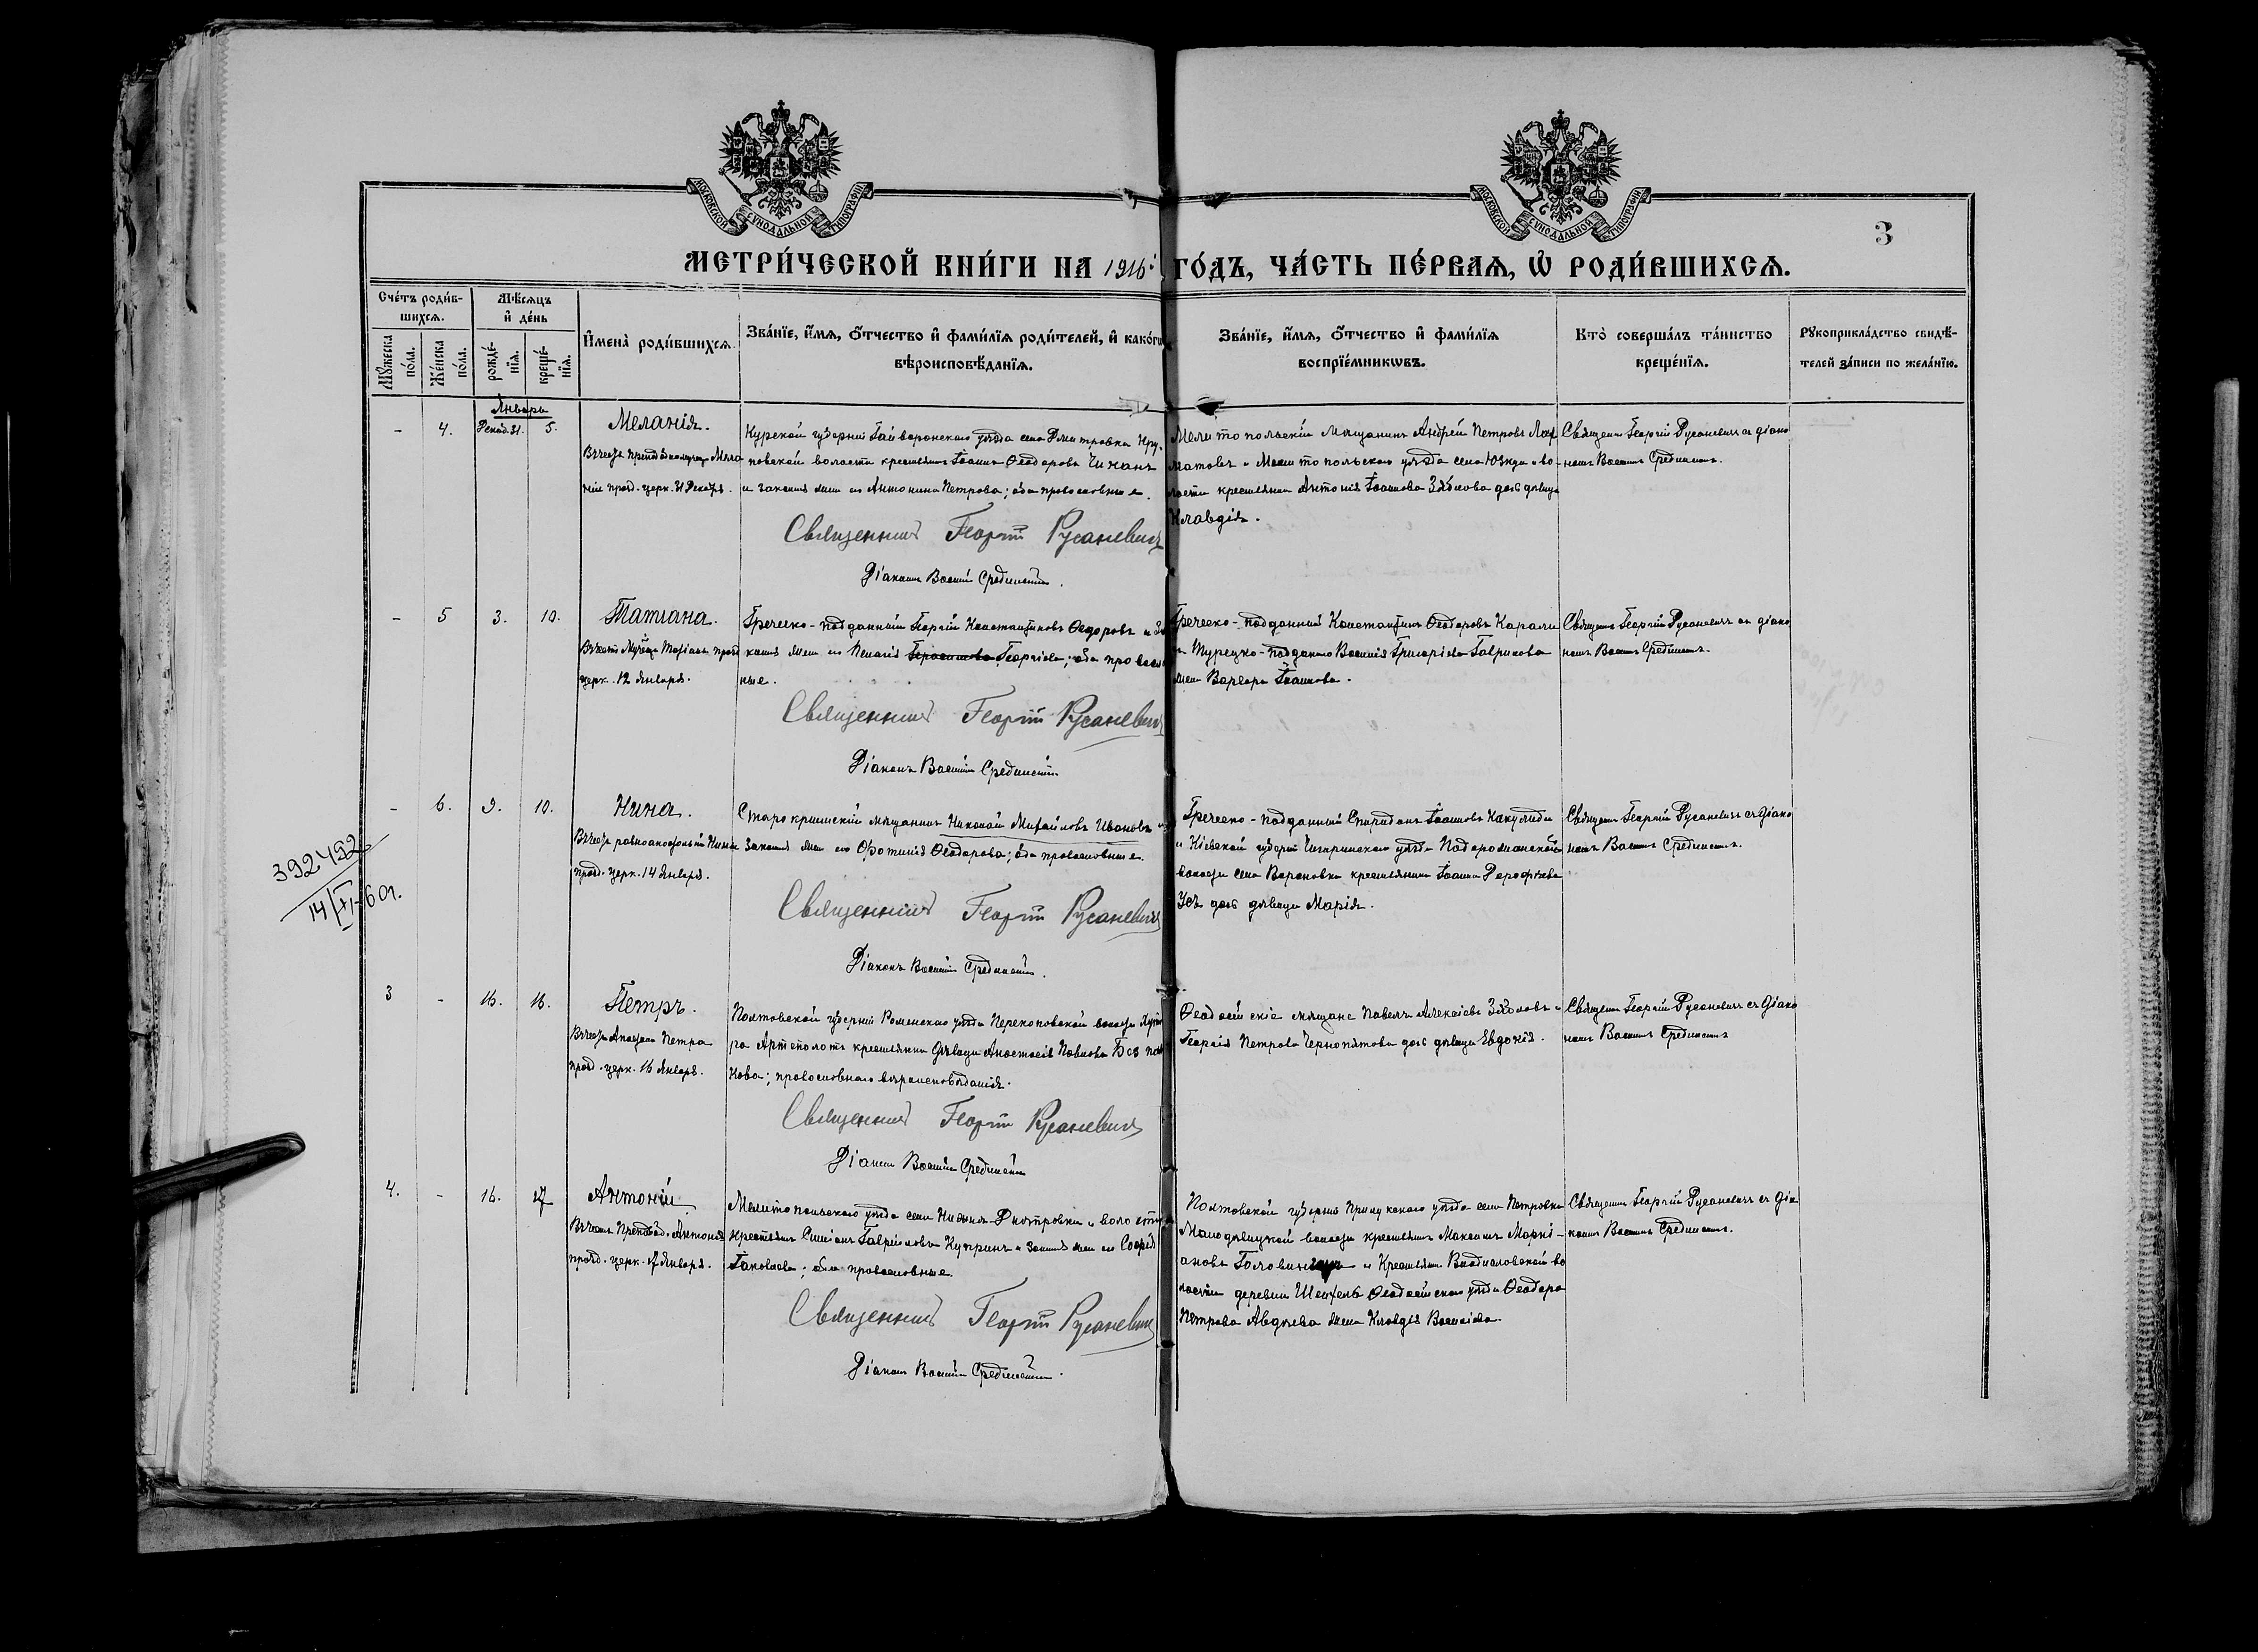 МОСКОВСКОЙ СѴНОДАЛЬНОЙ ТИПОГРАФІИ
МОСКОВСКОЙ СѴНОДАЛЬНОЙ ТИПОГРАФІИ
3
МЕТРИ́ЧЕСКОЙ КНИ́ГИ НА 1916й ГО́ДЪ, ЧА́СТЬ ПЕ́РВАѦ, Ѽ РОДИ́ВШИХСѦ.
Сче́тъ роди́в-
шихсѧ.
Мѣ́сѧцъ
и҆ де́нь
Мꙋ́жеска
по́ла.
Же́нска
по́ла.
рожде́-
нїѧ.
креще́-
нїѧ.
И҆мена̀ роди́вшихсѧ.
Зва́нїе, и҆́мѧ, ѻ҆́тчество и҆ фами́лїѧ роди́телей, и҆ како́гѡ
вѣроисповѣ́данїѧ.
Зва́нїе, и҆́мѧ, ѻ҆́тчество и҆ фами́лїѧ
воспрїе́мникѡвъ.
Кто̀ соверша́лъ та́инство
креще́нїѧ.
Рꙋкоприкла́дство свидѣ́-
телей за́писи по жела́нїю.
Январь
- 4. Декаб. 31. 5. Меланія.
Въ честь препод
нiи празд. церк. 31 Декабря.
Курской губерніи Гайворонскаго уѣзда села Дмитровка Кру-
повской волости крестьянинъ Іоаннъ Ѳеодоровъ
и законная жена его Антонина Петрова; оба православные.
Священникъ Георгій Русаневичъ
Діаконъ Василій Срединскій.
Мелитопольскій мѣщанинъ Андрей Петровъ
матовъ и Мелитопольскаго уѣзда села Юзкуи и во-
лости крестьянина Антонія Іоаннова Зябкова дочь дѣвица
Клавдія.
Священникъ Георгій Русаневичъ съ діако
номъ Василіемъ Срединскимъ.
- 5 3. 10. Татіана.
Въ честь Муч-цы Татіаны празд
церк. 12 Января.
Греческо-подданный Георгій Константиновъ Ѳедоровъ и за
конная жена его Пелагія Герасимова Георгіева; оба православ
ные.
Священникъ Георгій Русаневичъ
Діаконъ Василій Срединскій.
Греческо-подданный Константинъ Ѳеодоровъ Карали
и Турецко-подданаго Василія Григоріева Гаврилова
жена Варвара Іоаннова.
Священникъ Георгій Русаневичъ съ діако
номъ Василіемъ Срединскимъ.
392492
14/XI-60г.
- 6. 9. 10. Нина.
Въ честь равноапостольной Нины
празд. церк. 14 Января.
Старокрымскій мѣщанинъ Николай Михайловъ Ивановъ и
законная жена его Фотинія Ѳеодорова; оба православные.
Священникъ Георгій Русаневичъ
Діаконъ Василій Срединскій.
Греческо-подданный Спиридонъ Іоанновъ Какулиди
и Кіевской губерніи Чигиринскаго уѣзда Подорожанской
волости села Вороновки крестьянина Іоанна Дорофѣева
Усъ дочь дѣвица Марія.
Священникъ Георгій Русаневичъ съ діако
номъ Василіемъ Срединскимъ.
3 - 16. 16. Петръ.
Въ честь Апостола Петра
празд. церк. 16 Января.
Полтовской губерніи Роменскаго уѣзда Перекоповской волости Хуто
ра Артополотъ крестьянка дѣвица Анастасія Павлова
кова; православнаго вѣроисповѣданія.
Священникъ Георгій Русаневичъ
Діаконъ Василій Срединскій
Ѳеодосійскіе мѣщане Павелъ Алексіевъ Зябловъ и
Георгія Петрова Чернопятова дочь дѣвица Евдокія.
Священникъ Георгій Русаневичъ съ діако
номъ Василіемъ Срединскимъ
4. - 16. 17 Антоній
Въ честь Препод. Антонія
празд. церк. 17 Января.
Мелитопольскаго уѣзда села Нижня-Дмитровки и волости
крестьянинъ Симеонъ Гавріиловъ Купринъ и законная жена его Софія
Іаковлева; оба православные.
Священникъ Георгій Русаневичъ
Діаконъ Василій Срединскій.
Полтовской губерніи Прилукскаго уѣзда села Петровки
Малодѣвицкой волости крестьянинъ Максимъ Маркі-
ановъ и Крестьянина Владиславовской во
лости деревни Шейхъ Ѳеодосійскаго уѣзда Ѳеодора
Петрова Авдѣева жена Клавдія Василіева.
Священникъ Георгій Русаневичъ съ діа
кономъ Василіемъ Срединскимъ.